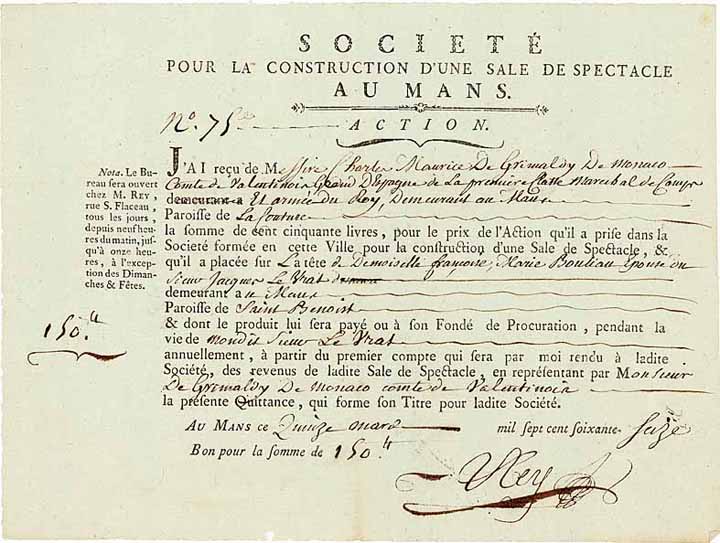 SOCIETÉ
POUR LA CONSTRUCTION D'UNE SALE DE SPECTACLE
AU MANS.
No. 75.
ACTION.
J'AI reçu de Messire Charles Maurice De Grimaldy De Monaco
Comte de Valentinois Grand D'Espagne de La premiere Classe Marechal de Camps
demeurant a Et armée du Roy, Demeurant au Mans
Paroisse de La Couture
la somme de cent cinquante livres, pour le prix de l'Action qu'il a prise dans la
Société formée en cette Ville pour la construction d'une Sale de Spectacle, &
qu'il a placée sur La tête de Demoiselle françoise, Marie Bouliau Epouse du
Sieur Jacques Le Vrat
demeurant au Mans
Paroisse de Saint Benoist
& dont le produit lui sera payé ou à son Fondé de Procuration, pendant la
vie de mondit Sieur Le Vrat
annuellement, à partir du premier compte qui sera par moi rendu à ladite
Société, des revenus de ladite Sale de Spectacle, en représentant par Monsieur
De Grimaldy De Monaco comte de Valentinois
la présente Quittance, qui forme son Titre pour ladite Société.
AU MANS ce Quinze mars mil sept cent soixante-seize
Bon pour la somme de 150 ₶
Rey
Nota. Le Bu-
reau sera ouvert
chez M. REY,
rue S. Flaceau,
tous les jours,
depuis neuf heu-
res du matin, jus-
qu'à onze heu-
res, à l'exception
des Diman-
ches & Fêtes.
150 ₶